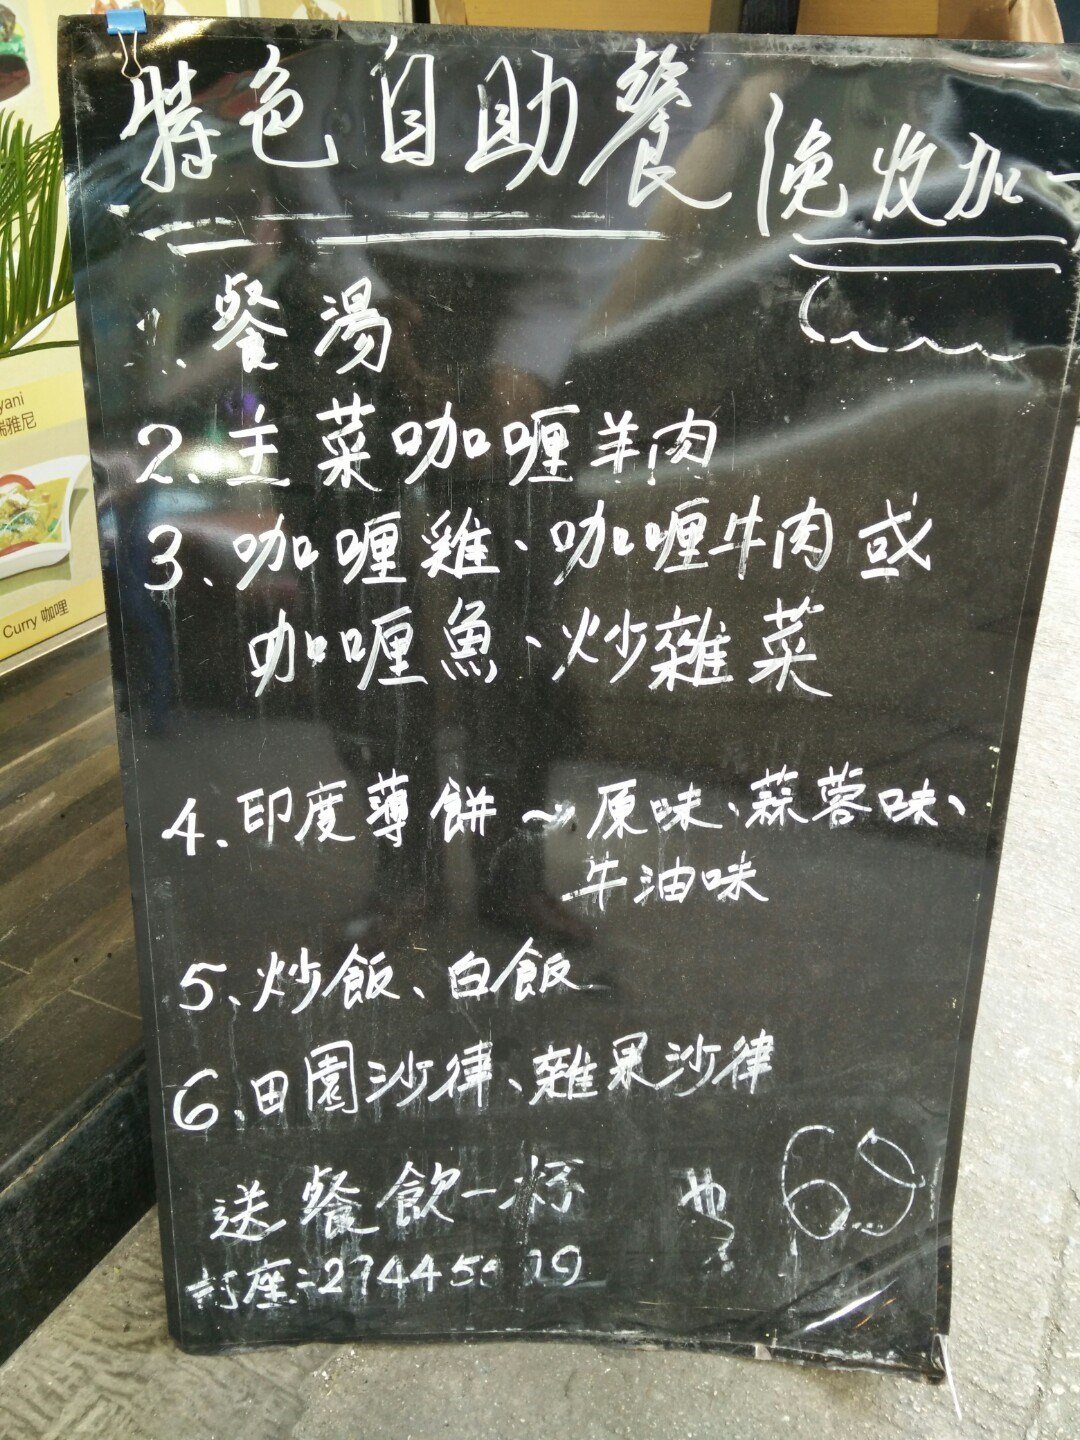 特色自助餐 (免收加一
1. 餐湯
2. 主菜咖喱羊肉
3. 咖喱雞、咖喱牛肉或
咖喱魚、炒雜菜
4. 印度薄餅~原味、蒜蓉味、
牛油味
5、炒飯、白飯
6、田園沙律、雜果沙律
送餐飲一杯
訂座:
yani
瑞雅尼
Curry 咖哩